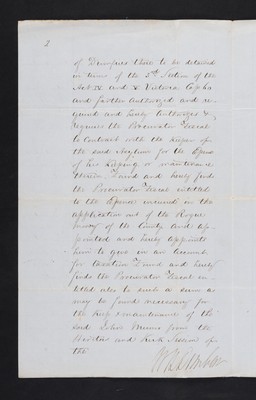 2
of Dumfries there to be detained
in terms of the 5th Section of the
Act and Victoria Capha
and further Authorized and re-
quired and hereby Authorizes &
requires the Procurator Fiscal
to Contract with the keeper of
the said Asylum for the Expense
of his keeping or maintenance
therein Found and hereby finds
the Procurator Fiscal entitled
to the Expenses incurred in this
application out of the Rogue
money of the County and ap-
pointed and hereby appoints
him to give in an Account
for taxation Found and hereby
finds the Procurator Fiscal en-
titled also to such a sum as
may be found necessary for
the keep & maintenance of the
said John from the
Heritors and Kirk Session of
the